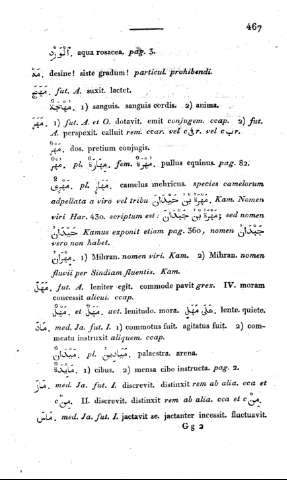 467
اَلْوَرْدِ. aqua rosacea. pag. 3.
مَهْ. desine! siste gradum! particul. prohibendi.
مَهَجَ. fut. A. suxit. lactet.
مُهْجَةٌ. 1) sanguis. sanguis cordis. 2) anima.
مَهَرَ. 1) fut. A. et O. dotavit. emit conjugem. ccap. 2) fut.
A. perspexit. calluit rem. ccar. vel c في r. vel c ب r.
مَهْرٌ. dos. pretium conjugis.
مُهْرٌ. pl. مِهَارَةٌ. fem. مُهْرَةٌ. pullus equinus. pag. 82.
مَهْرِيٌّ. pl. مَهَارٍ. camelus mehricus. species camelorum
adpellata a viro vel tribu مَهْرَة بْن حَيْدَان Kam. Nomen
viri Har. 430. scriptum est: مَهْرَة بْن جَيْدَان; sed nomen
حَيْدَانُ Kamus exponit etiam pag. 360, nomen جَيْدَانُ
vero non habet.
مِهْرَانُ. 1) Mihran. nomen viri. Kam. 2) Mihran. nomen
fluvii per Sindiam fluentis. Kam.
مَهَلَ. fut. A. leniter egit. commode pavit grex. IV. moram
concessit alicui. ccap.
مَهْلٌ. et مَهَلٌ. act. lenitudo. mora. عَلَى مَهْلٍ. lente. quiete.
مَادَ. med. Ja. fut. I. 1) commotus fuit. agitatus fuit. 2) com-
meatu instruxit aliquem. ccap.
مَيْدَانٌ. pl. مَيَادِينُ. palaestra. arena.
مَايِدَةٌ. 1) cibus. 2) mensa cibo instructa. pag. 2.
مَازَ. med. Ja. fut. I. discrevit. distinxit rem ab alia. cca et
c مِنْ. II. discrevit. distinxit rem ab alia. cca et c مِنْ.
مَاسَ. med. Ja. fut. I. jactavit se. jactanter incessit. fluctuavit.
G g 2